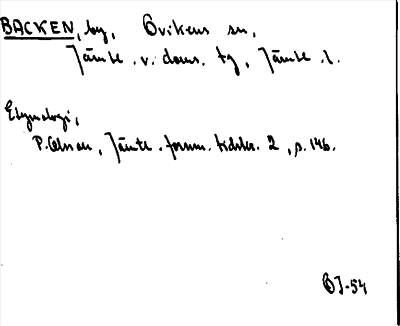 BACKEN, by, Ovikens sn,
Jämtl. v. doms. tg, Jämtl. l.
Etymologi,
P. Olsson, Jämtl. fornm. tidskr. 2, s. 146.
OJ-54